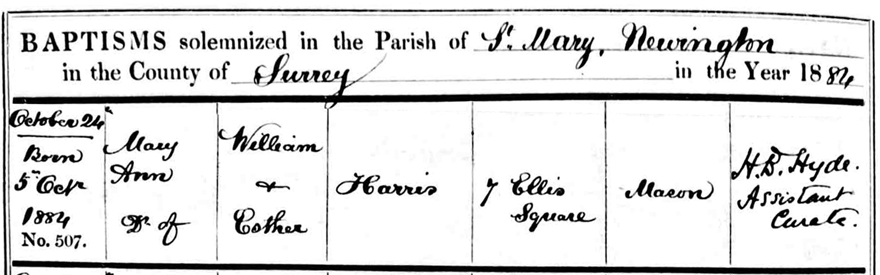 BAPTISMS solemnized in the Parish of St. Mary, Newington
in the County of Surrey in the Year 1884
October 24th
Born
5th Oct
1884
No. 507.
Mary
Ann
Dr of
William
&
Esther
Harris
7 Ellis
Square
Mason
H.B. Hyde.
Assistant
Curate.